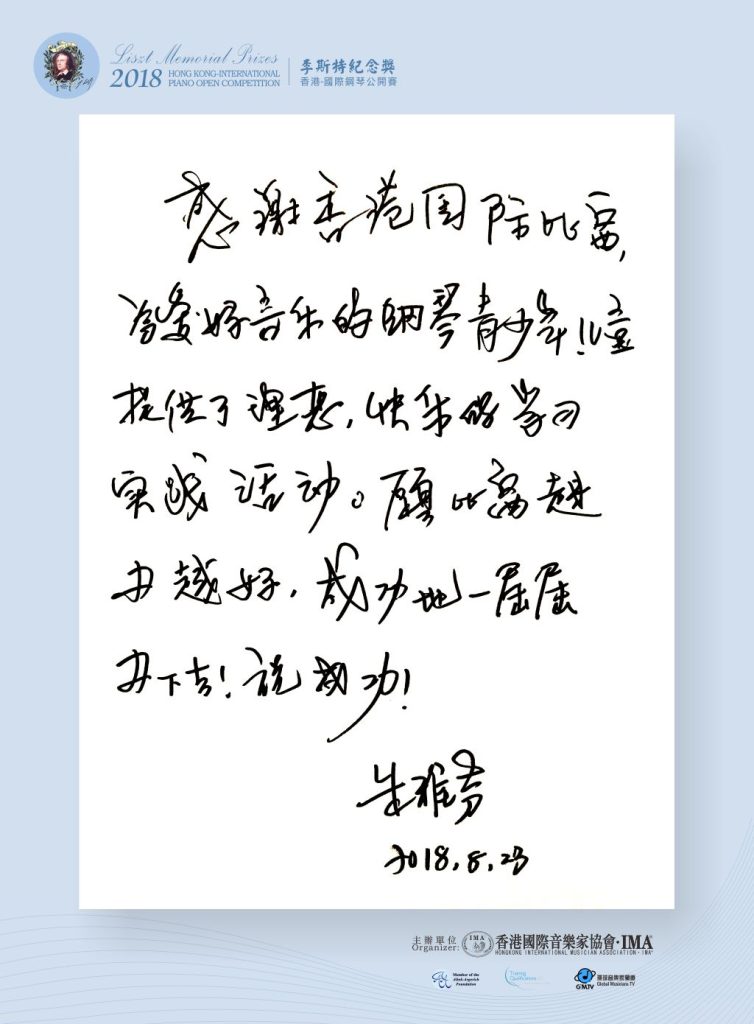 Liszt Memorial Prizes
2018 HONG KONG-INTERNATIONAL
PIANO OPEN COMPETITION
李斯特紀念獎
香港·國際鋼琴公開賽
感谢香港国际比赛,
为爱好音乐的钢琴青少年儿童
提供了理想,快乐的学习
实践活动。愿比赛越
办越好,成功地一届届
办下去!祝成功!
朱雅芬
2018.8.23
主辦單位
Organizer:
IMA
香港國際音樂家協會·IMA
HONGKONG INTERNATIONAL MUSICIAN ASSOCIATION · IMA
Member of the
Alink-Argerich
Foundation
環球音樂家電視
Global Musicians TV
GMTV